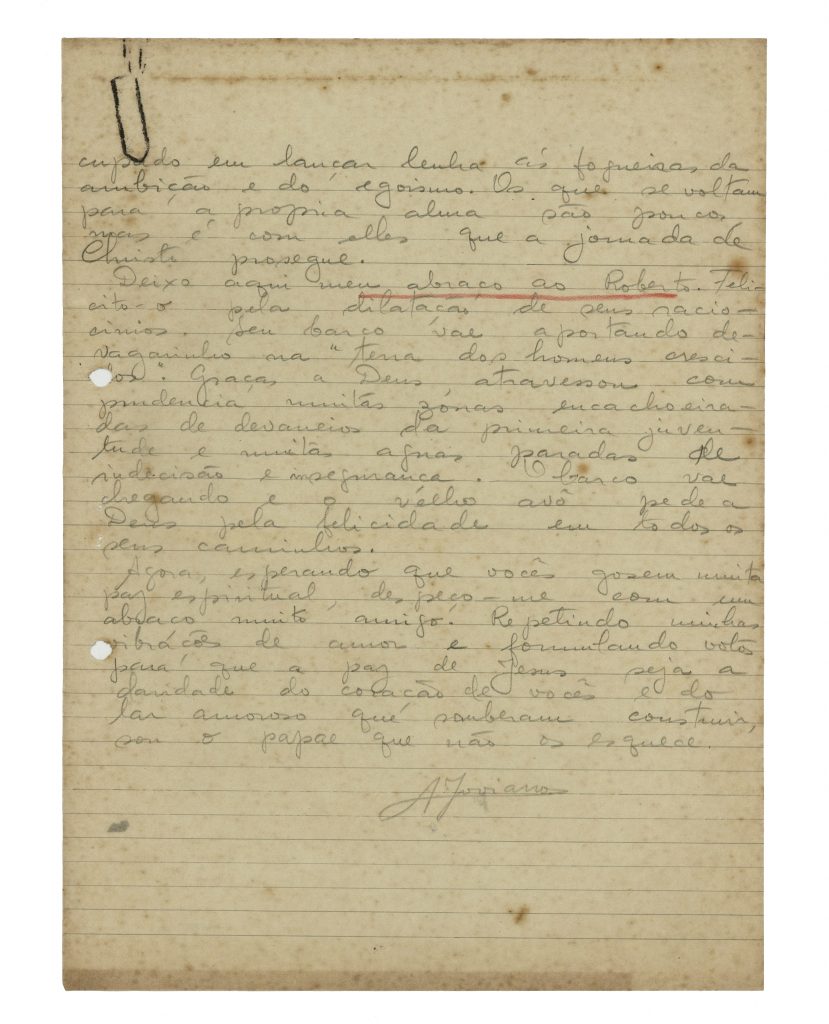 cupado em lançar lenha ás fogueiras da
ambição e do egoismo. Os que se voltam
para a propria alma são poucos,
mas é com elles que a jornada de
Christo prosegue.
Deixo aqui meu abraço ao Roberto. Feli-
cito-o pela dilatação de seus racio-
cinios. Seu barco vae aportando de-
vagarinho na "terra dos homens cresci-
dos". Graças a Deus, atravessou com
prudencia muitas zónas encachoeira-
das de devaneios da primeira juven-
tude e muitas aguas paradas de
indecisão e insegurança. O barco vae
chegando e o vélho avô pede a
Deus pela felicidade em todos os
seus caminhos.
Agora, esperando que vocês gosem muita
paz espiritual, despeço-me com um
abraço muito amigo. Repetindo minhas
vibrações de amor e formulando votos
para que a paz de Jesus seja a
claridade do coração de vocês e do
lar amoroso que souberam construir,
sou o papae que não os esquece.
A. Joviano